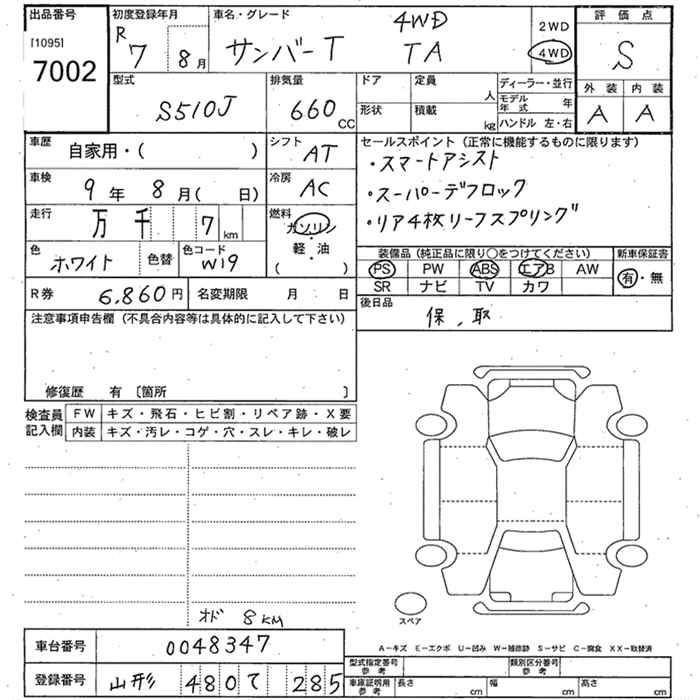 出品番号
[1095]
7002
初度登録年月
R 7 8月
車名・グレード
サンバーT 4WD TA
2WD
4WD
評価点
S
外装 内装
A A
型式
S510J
排気量
660 CC
ドア
定員 人
形状
積載 kg
ディーラー・並行
モデル年式 年
ハンドル 左・右
車歴
自家用・( )
シフト
AT
車検
9年 8月( 日)
冷房
AC
走行
万 千 7 km
燃料
ガソリン
・
軽・油
( )
色
ホワイト
色替
色コード
W19
セールスポイント (正常に機能するものに限ります)
・スマートアシスト
・スーパーデフロック
・リア4枚リーフスプリング
装備品 (純正品に限り〇をつけてください)
PS PW ABS エアB AW
SR ナビ TV カワ
新車保証書
有・無
R券 6,860円
名変期限 月 日
後日品
保、取
注意事項申告欄 (不具合内容等は具体的に記入して下さい)
修復歴 有 〔箇所 〕
検査員記入欄
FW キズ・飛石・ヒビ割・リペア跡・X要
内装 キズ・汚レ・コゲ・穴・スレ・キレ・破レ
オド 8KM
スペア
車台番号
0048347
A−キズ E−エクボ U−凹み W−補修跡 S−サビ C−腐食 XX−取替済
登録番号
山形 480 て 285
型式指定番号 参考
類別区分番号 参考
車庫証明用 参考
長さ cm
幅 cm
高さ cm